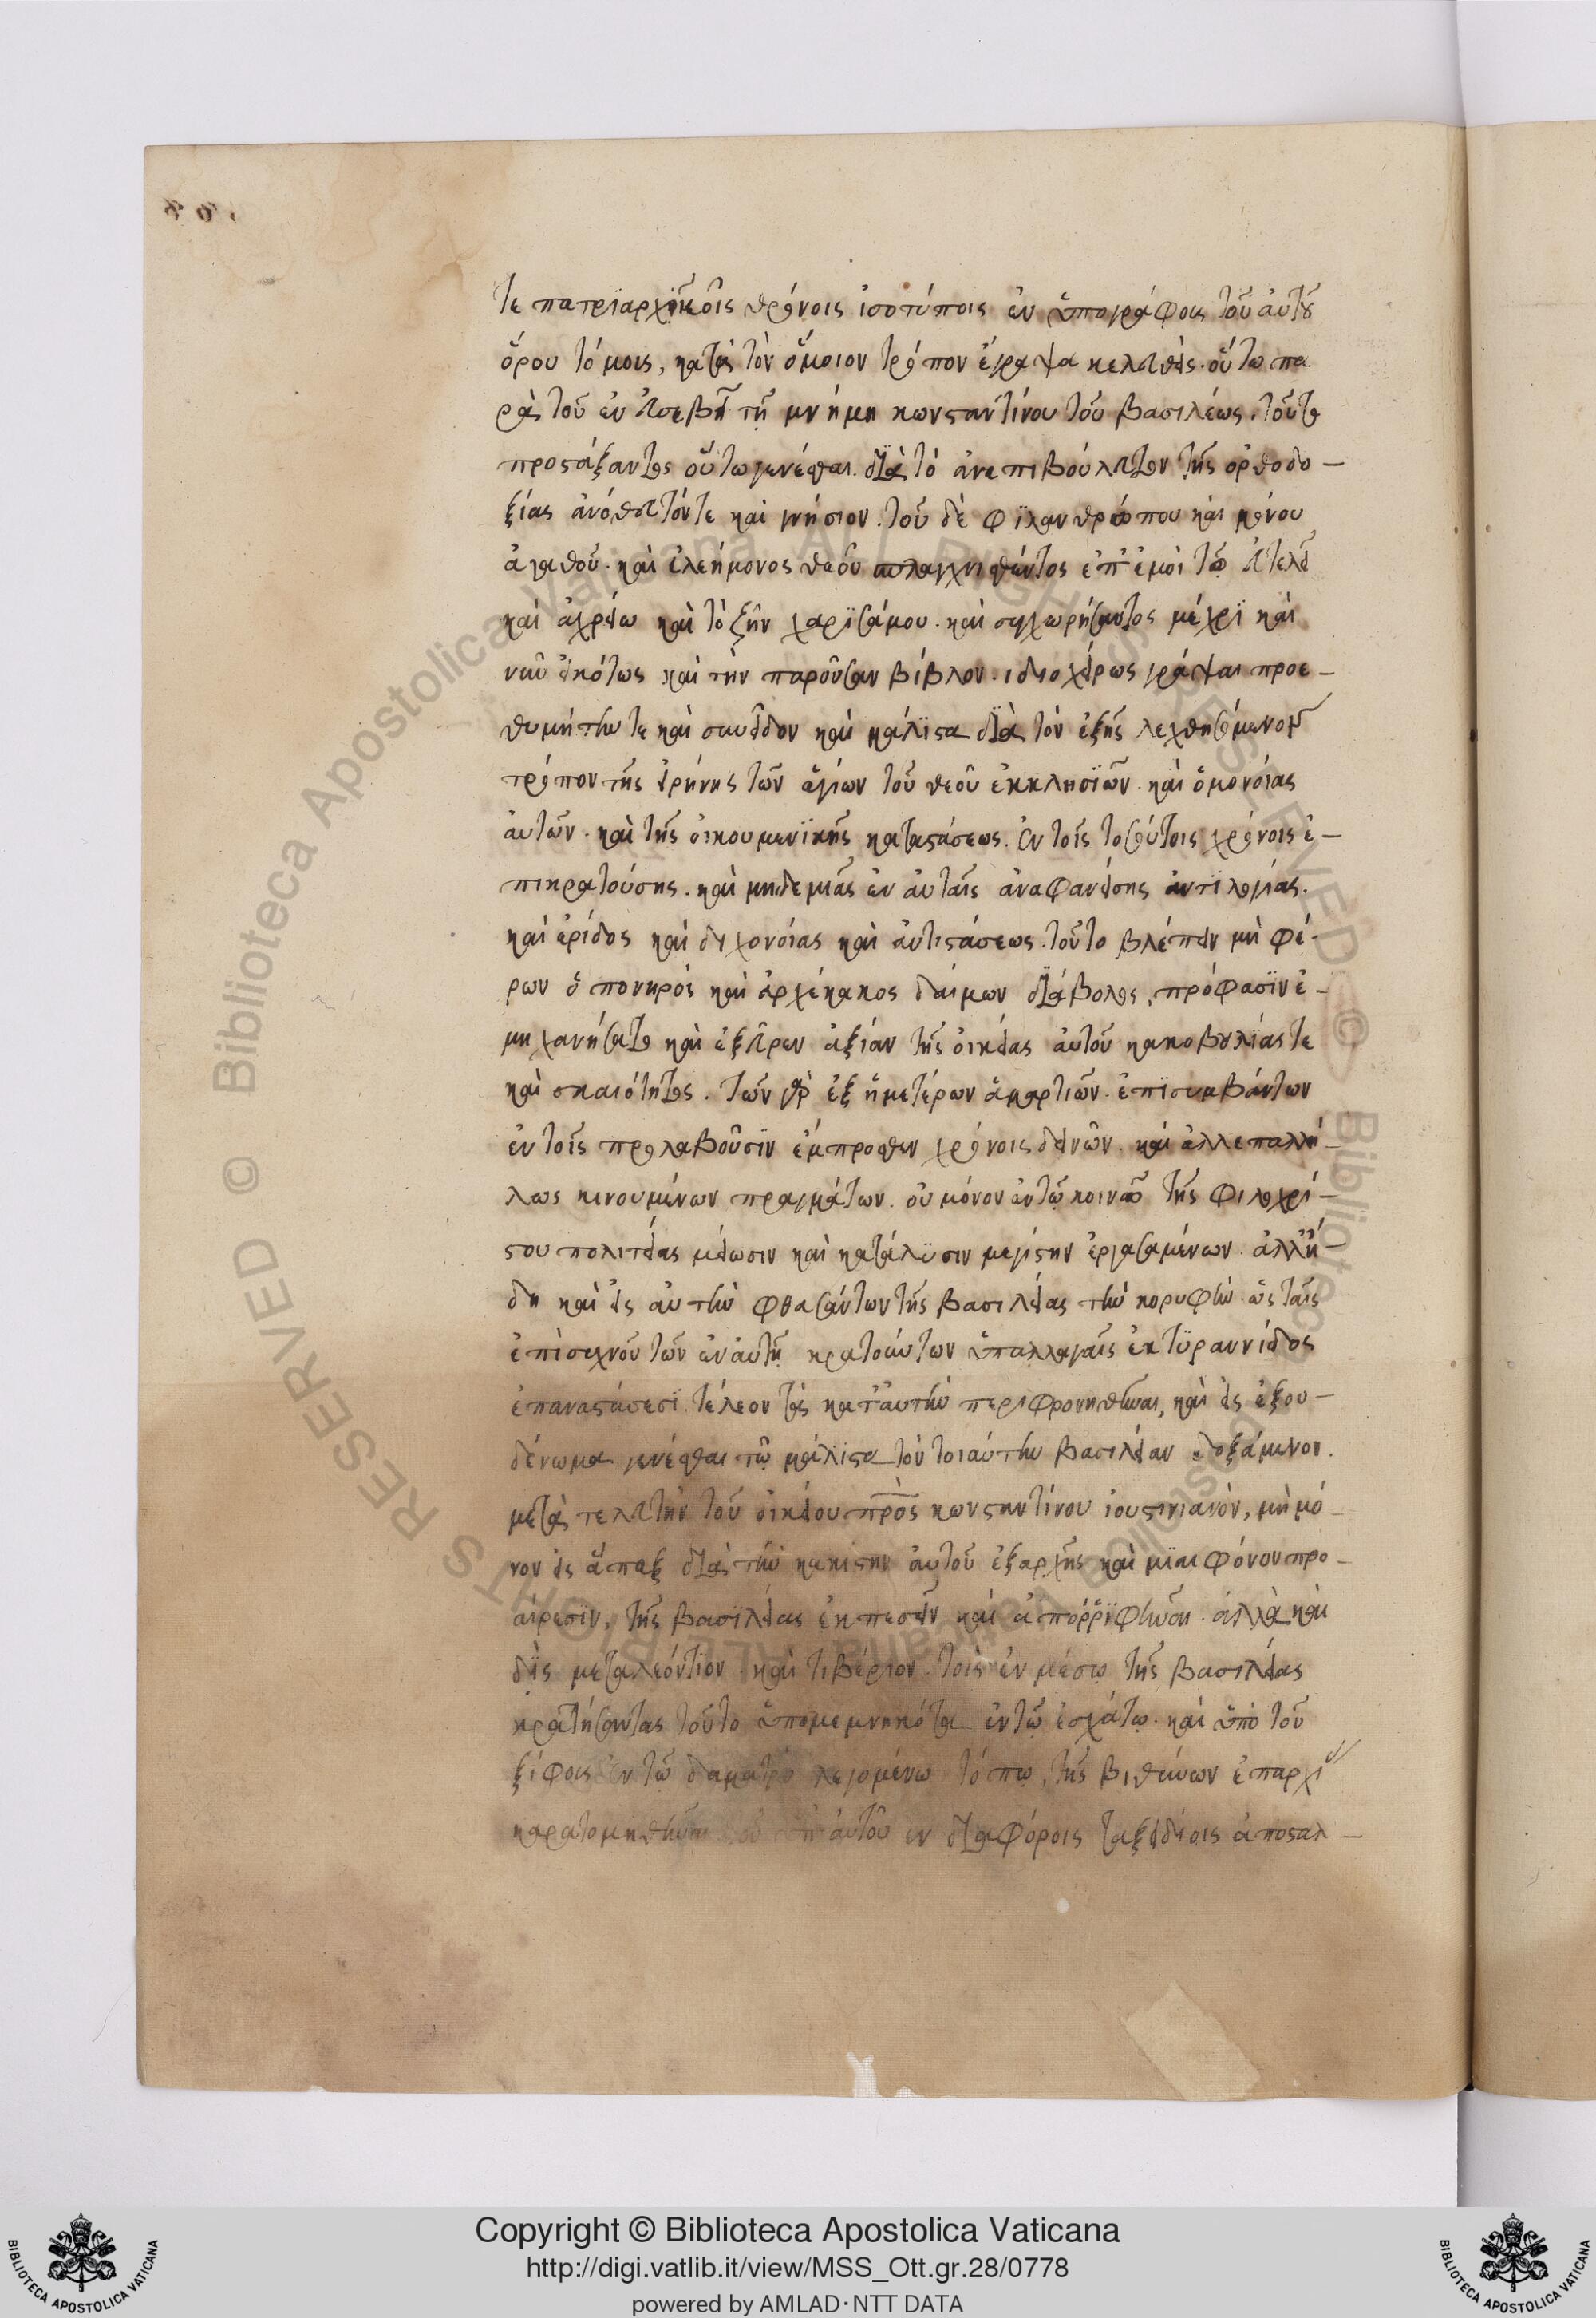 τε πατριαρχικοῖς θρόνοις ἰσοτύποις ἐν ὑπογράφοις τοῦ αὐτοῦ
ὅρου τόμοις, κατὰ τὸν ὅμοιον τρόπον ἔγραψα κελευθεὶς. οὕτω πα
ρὰ τοῦ ἐν εὐσεβεῖ τῇ μνήμῃ κωνσταντίνου τοῦ βασιλέως. τοῦτο
προστάξαντος οὕτω γενέσθαι. διὰ τὸ ἀνεπιβούλευτον τῆς ὀρθοδο-
ξίας ἀνόθευτόν τε καὶ γνήσιον. τοῦ δὲ φιλανθρώπου καὶ μόνου
ἀγαθοῦ. καὶ ἐλεήμονος θεοῦ σπλαγχνισθέντος ἐπ' ἐμοὶ τῷ εὐτελεῖ
καὶ ἀχρείω καὶ τὸ ζῆν χαρισάμου. καὶ συγχωρήσαντος μέχρι καὶ
νῦν εἰκότως καὶ τὴν παροῦσαν βίβλον. ἰδιοχείρως γράψαι προε-
θυμήθην τε καὶ συνεῖδον καὶ μάλιστα διὰ τὸν ἑξῆς λεχθησόμενον
τρόπον τῆς εἰρήνης τῶν ἁγίων τοῦ θεοῦ ἐκκλησιῶν. καὶ ὁμονοίας
αὐτῶν. καὶ τῆς οἰκουμενικῆς καταστάσεως. ἐν τοῖς τοσούτοις χρόνοις ἐ-
πικρατούσης. καὶ μηδεμιᾶς ἐν αὐταῖς ἀναφανείσης ἀντιλογίας.
καὶ ἐρίδος καὶ διχονοίας καὶ ἀντιστάσεως. τοῦτο βλέπειν μὴ φέ-
ρων ὁ πονηρὸς καὶ ἀρχέκακος δαίμων διάβολος, πρόφασιν ἐ-
μηχανήσατο καὶ ἐξεῦρεν ἀξίαν τῆς οἰκείας αὐτοῦ κακοβουλίας τε
καὶ σκαιότητος. τῶν γὰρ ἐξ ἡμετέρων ἁμαρτιῶν. ἐπισυμβάντων
ἐν τοῖς προλαβοῦσιν ἔμπροσθεν χρόνοις δεινῶν. καὶ ἀλλεπαλλή-
λως κινουμένων πραγμάτων. οὐ μόνον ἐν τῷ κοινῷ τῆς φιλοχρί-
στου πολιτείας μείωσιν καὶ κατάλυσιν μεγίστην ἐργασαμένων. ἀλλ' ἤ-
δη καὶ εἰς αὐτὴν φθασάντων τῆς βασιλείας τὴν κορυφὴν. ὡς ταῖς
ἐπὶ συχνοῦ τῶν ἐν αὐτῇ κρατούντων ὑπαλλαγαῖς ἐκ τυραννίδος
ἐπαναστάσεσι. τέλεον τὰς κατ' αὐτὴν περιφρονηθῆναι, καὶ εἰς ἐξου-
δένωμα γενέσθαι τῷ μάλιστα τὸν τοιαύτην βασιλείαν δοξάμενον.
μετὰ τελευτὴν τοῦ οἰκείου πρὸς κωνσταντίνου ἰουστινιανὸν, μὴ μό-
νον εἰς ἅπαξ διὰ τὴν κακίστην αὐτοῦ ἐξαρχῆς καὶ μιαιφόνον προ-
αίρεσιν, τῆς βασιλείας ἐκπεσεῖν καὶ ἀπορριφῆναι. ἀλλὰ καὶ
δὶς μετὰ λεόντιον. καὶ τιβέριον. τοὶς ἐν μέσῳ τῆς βασιλείας
κρατήσαντας τοῦτο ὑπομεμνηκότα ἐν τῷ ἐσχάτῳ. καὶ ὑπὸ τοῦ
ξίφους ἐν τῷ δαματρὺ λεγομένω τόπῳ, τῆς βιθυνῶν ἐπαρχί
καρατομηθῆναι τοῦ ὑπ' αὐτοῦ ἐν διαφόροις ταξειδίοις ἀποσταλ-
Copyright © Biblioteca Apostolica Vaticana
http://digi.vatlib.it/view/MSS_Ott.gr.28/0778
powered by AMLAD·NTT DATA